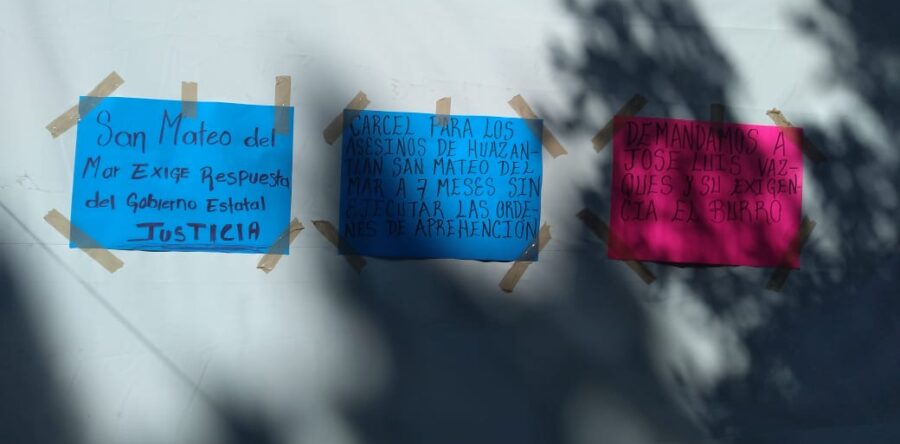 San Mateo del
Mar EXIGE Respuesta
del Gobierno Estatal
JUSTICIA
CARCEL PARA LOS
ASESINOS DE HUAZAN-
TLAN SAN MATEO DEL
MAR A 7 MESES SIN
EJECUTAR LAS ORDE-
NES DE APREHENCIÓN
DEMANDAMOS A
JOSE LUIS VAZ-
QUES Y SU EXIGEN-
CIA EL BURRO